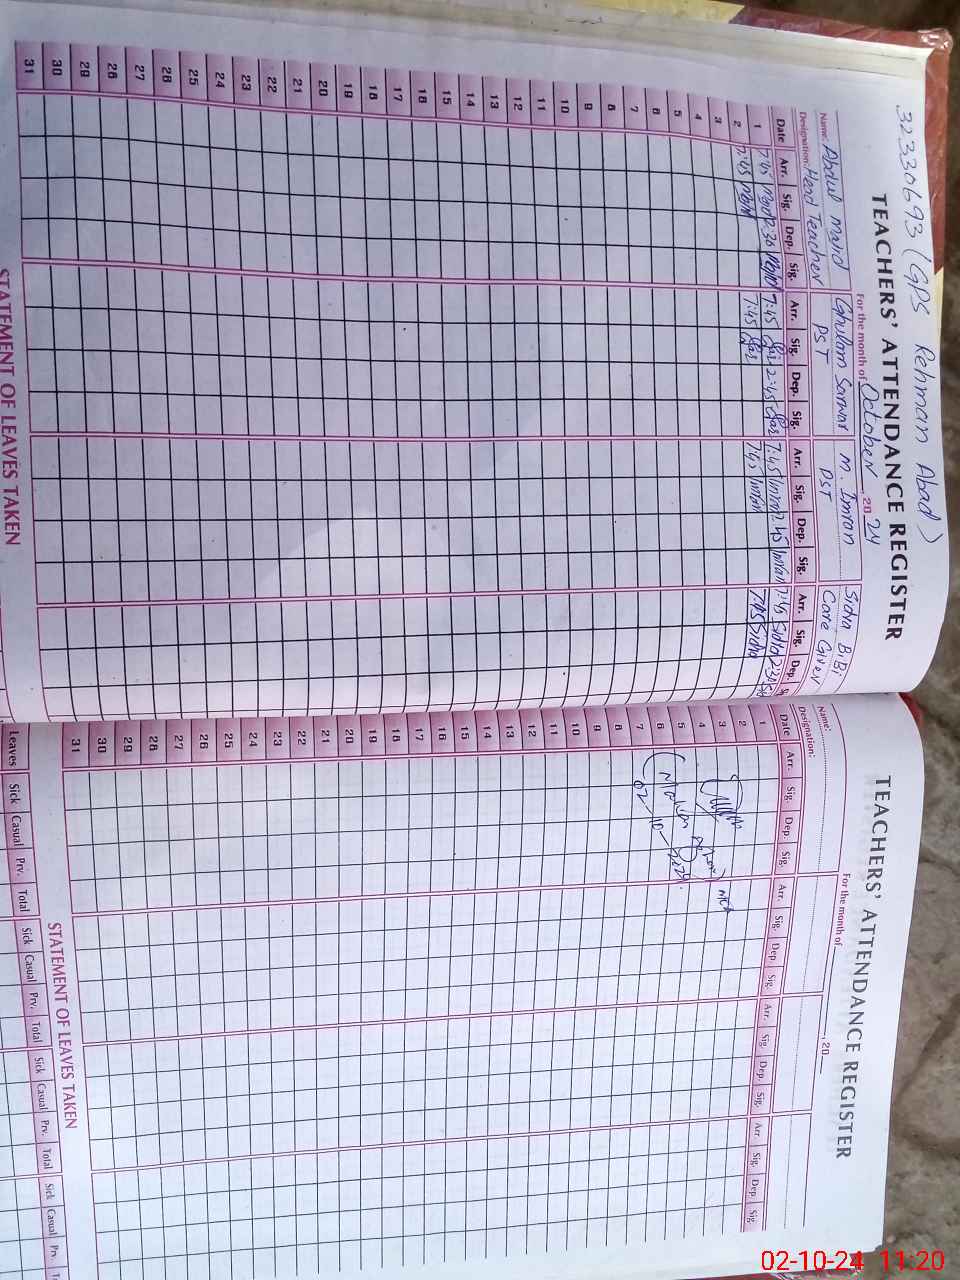 32330693 (GPS Rehman Abad)
TEACHERS' ATTENDANCE REGISTER
For the month of October, 2024
Name: Abdul Majid Ghulam Sarwar M. Imran Sidra BiBi
Designation: Head Teacher PST PST Care Giver
Date Arr. Sig. Dep. Sig. Arr. Sig. Dep. Sig. Arr. Sig. Dep. Sig. Arr. Sig. Dep.
1 7:45 Majid 2:30 Majid 7:45 Sar 2:45 Sar 7:45 Imran 2:45 Imran 7:45 Sidra 2:30
2 7:45 Majid 7:45 Sar 7:45 Imran 7:45 Sidra
3
4
5
6
7
8
9
10
11
12
13
14
15
16
17
18
19
20
21
22
23
24
25
26
27
28
29
30
31
STATEMENT OF LEAVES TAKEN
TEACHERS' ATTENDANCE REGISTER
For the month of , 20
Name:
Designation:
Date Arr. Sig. Dep. Sig. Arr. Sig. Dep. Sig. Arr. Sig. Dep. Sig. Arr. Sig. Dep. Sig.
1
2
3
4
5
6
7
8
9
10
11
12
13
14
15
16
17
18
19
20
21
22
23
24
25
26
27
28
29
30
31
MEA
02-10-2024
STATEMENT OF LEAVES TAKEN
Leaves Sick Casual Prv. Total Sick Casual Prv. Total Sick Casual Prv. Total Sick Casual Prv.
02-10-24 11:20